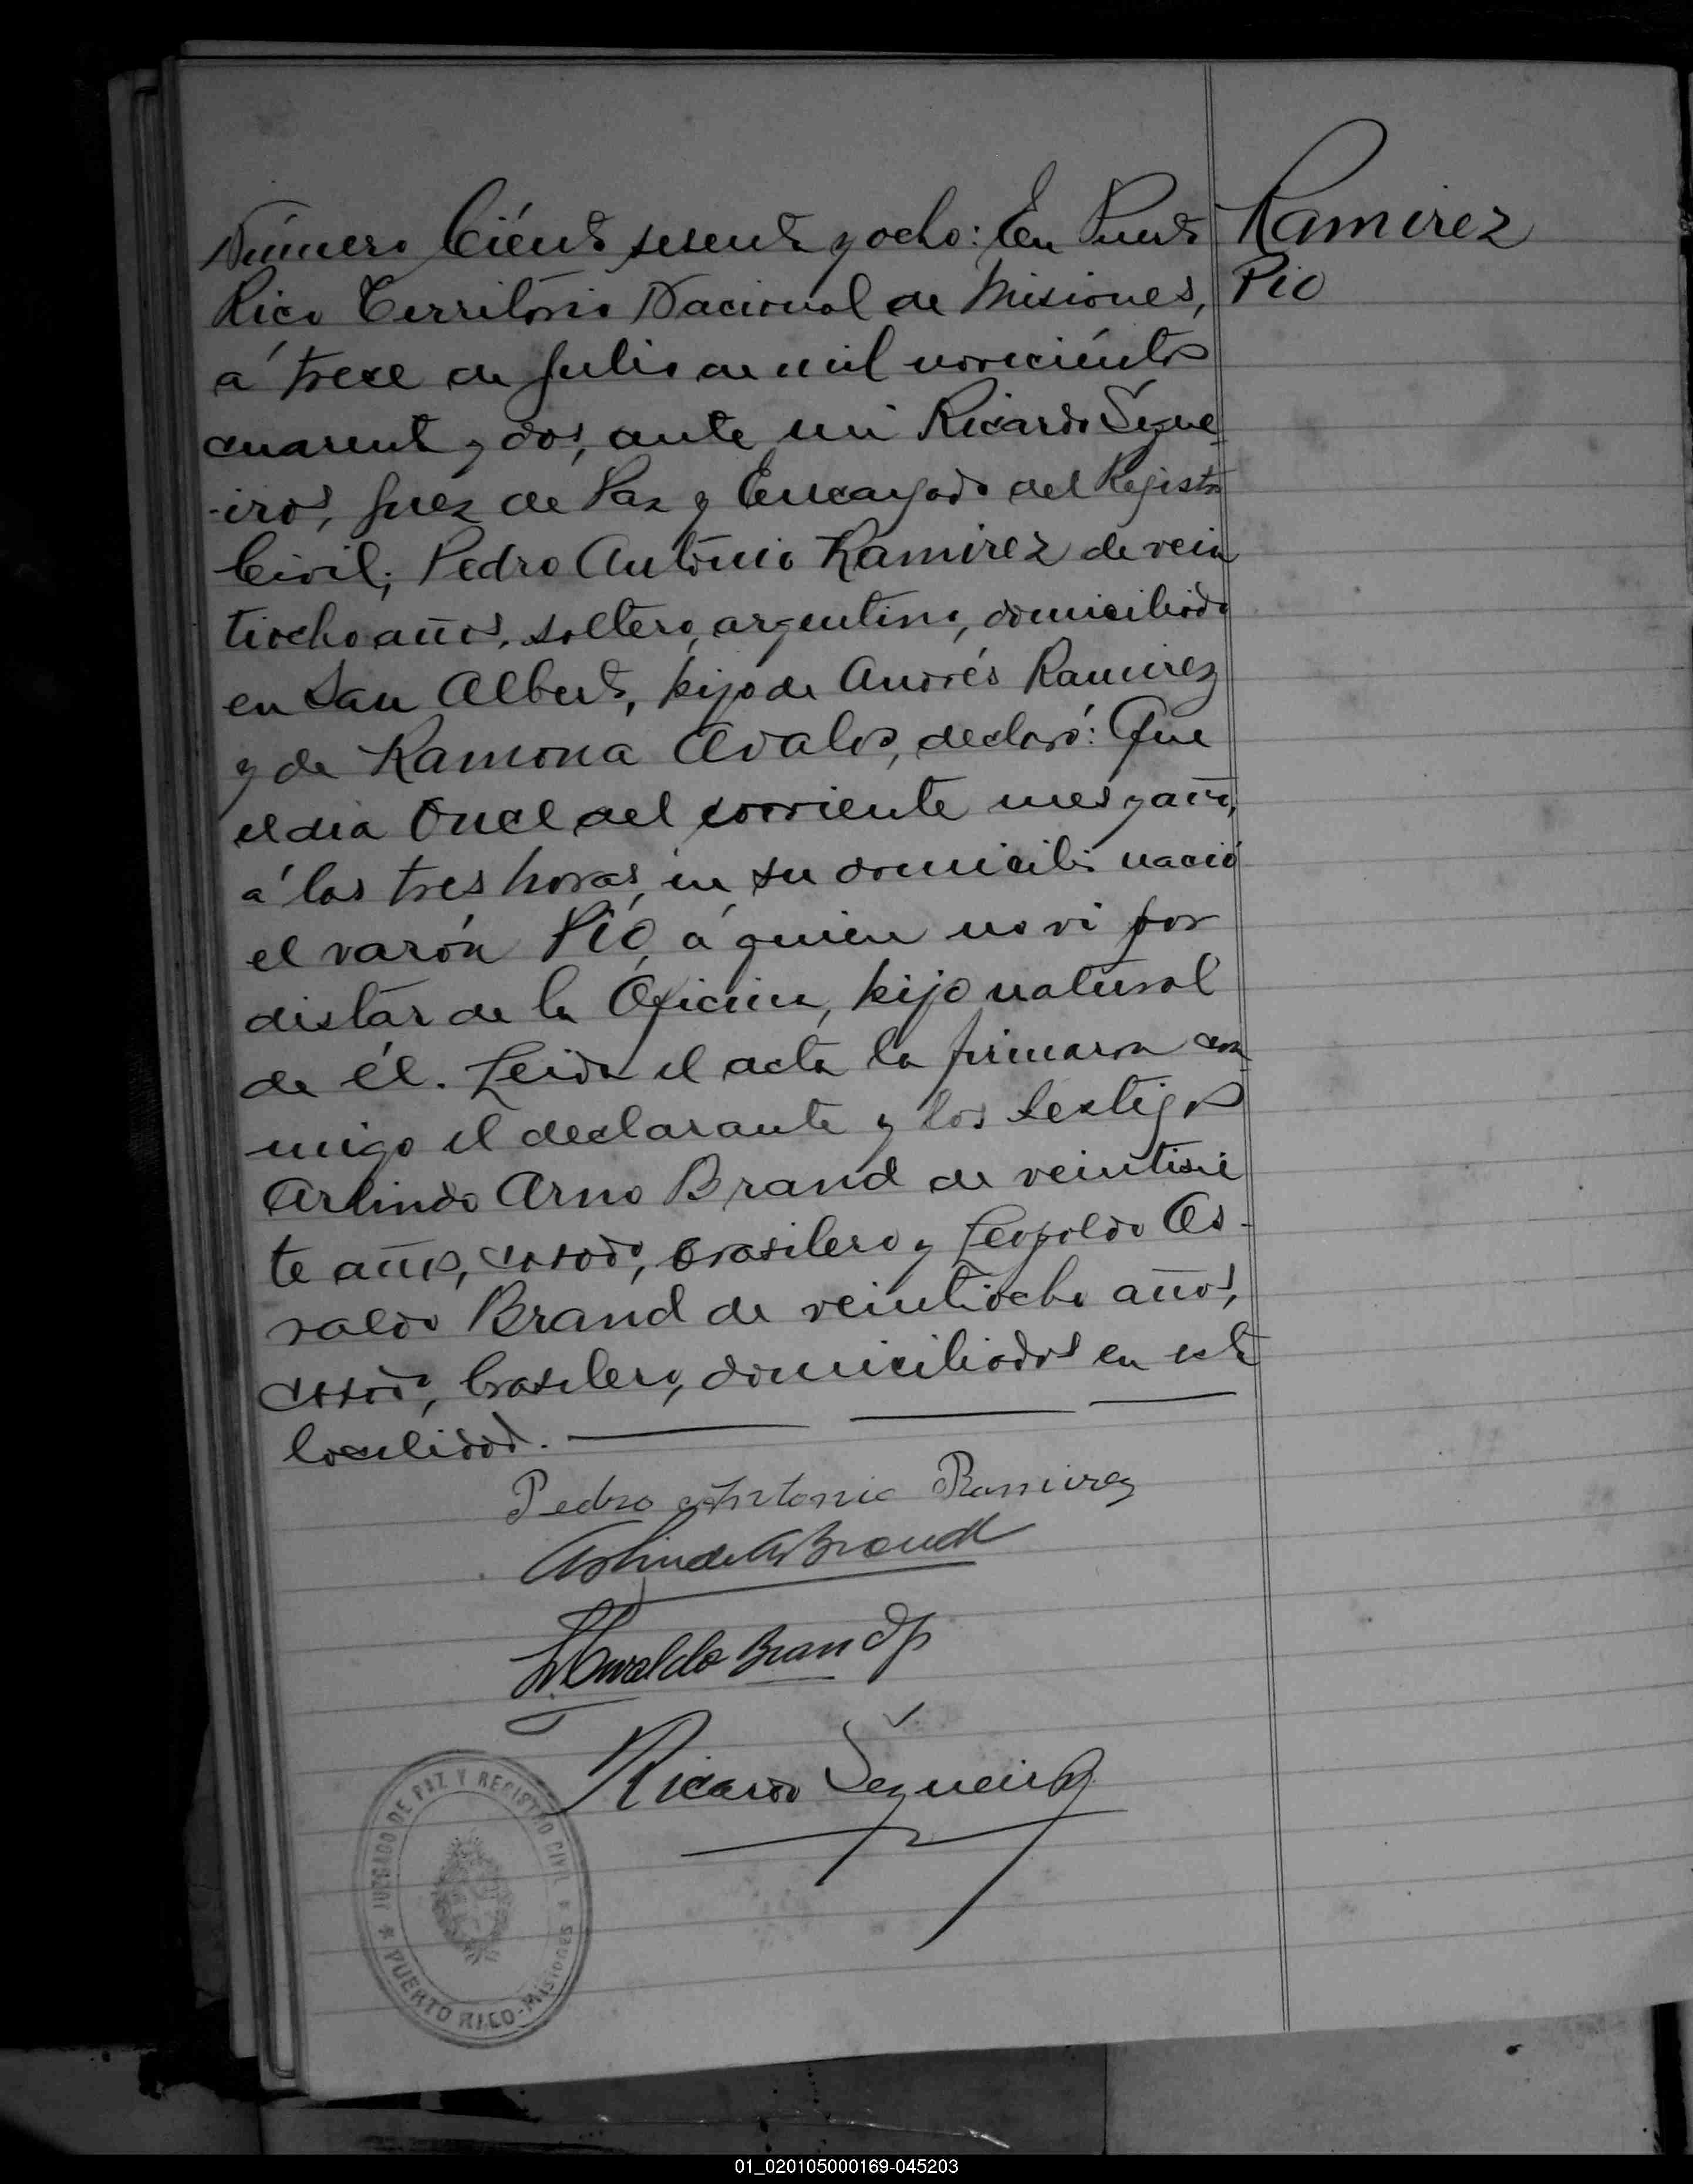 Número Ciénto sesenta y ocho: En Puerto
Rico Territorio Nacional de Misiones,
á trece de Julio de mil novecientos
cuarenta y dos, ante mi Ricardo Seque
-iros, Juez de Paz y Encargado del Registro
Civil; Pedro Antonio Ramirez de vein
tiocho años, soltero, argentino, domiciliado
en San Alberto, hijo de Andrés Ramirez
y de Ramona Avalos, declaró: Que
el dia Once del corriente mes y año,
á las tres horas, en su domicilio nació
el varón Pío, á quien no vi por
distar de la Oficina, hijo natural
de él. Leida el acta la firmaron con
migo el declarante y los testigos
Arlindo Arno Brand de veintisie
te años, casado, brasilero y Leopoldo Os-
valdo Brand de veintiocho años,
casado, brasilero, domiciliados en esta
localidad.
Pedro Antonio Ramirez
Arlindo A Brand
L. Oswaldo Brand
Ricardo Sequeiros
Ramirez
Pio
JUZGADO DE PAZ Y REGISTRO CIVIL
PUERTO RICO - Misiones
01_020105000169-045203